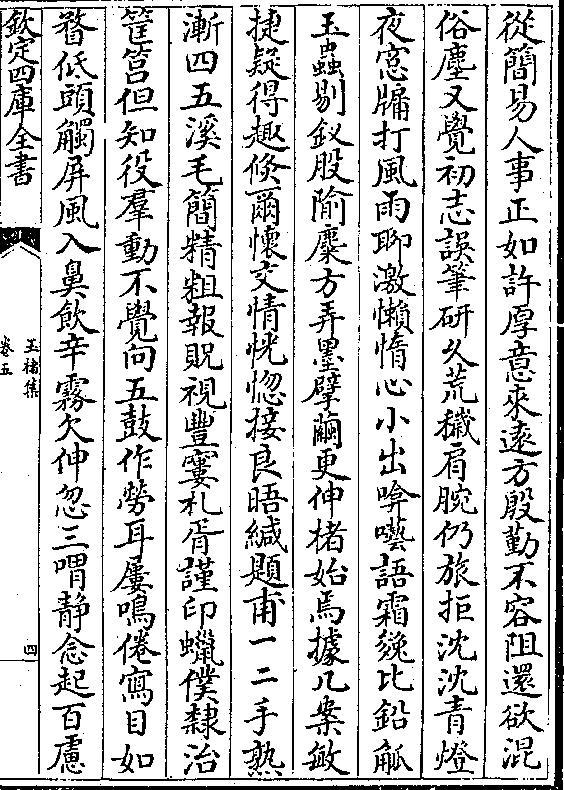 從簡易人事正如許厚意來遠方殷勤不容阻還欲混
俗塵又覺初志誤筆研久荒穢肩腕仍旅拒沈沈青燈
夜窓牖打風雨聊激懶惰心小出唥囈語霜毚比鉛觚
玉蟲剔釵股隃麋方弄墨擘繭更伸楮始焉據几案敏
捷疑得趣倏爾懷交情恍惚接良晤緘題甫一二手熟
漸四五溪毛簡精粗報貺視豐窶札胥謹印蠟僕隸治
筐筥但知役羣動不覺向五鼓作勞耳屢鳴倦寫目如
瞀低頭觸屏風入鼻飲辛霧欠伸忽三喟静念起百慮
欽定四庫全書
玉楮集
卷五
四